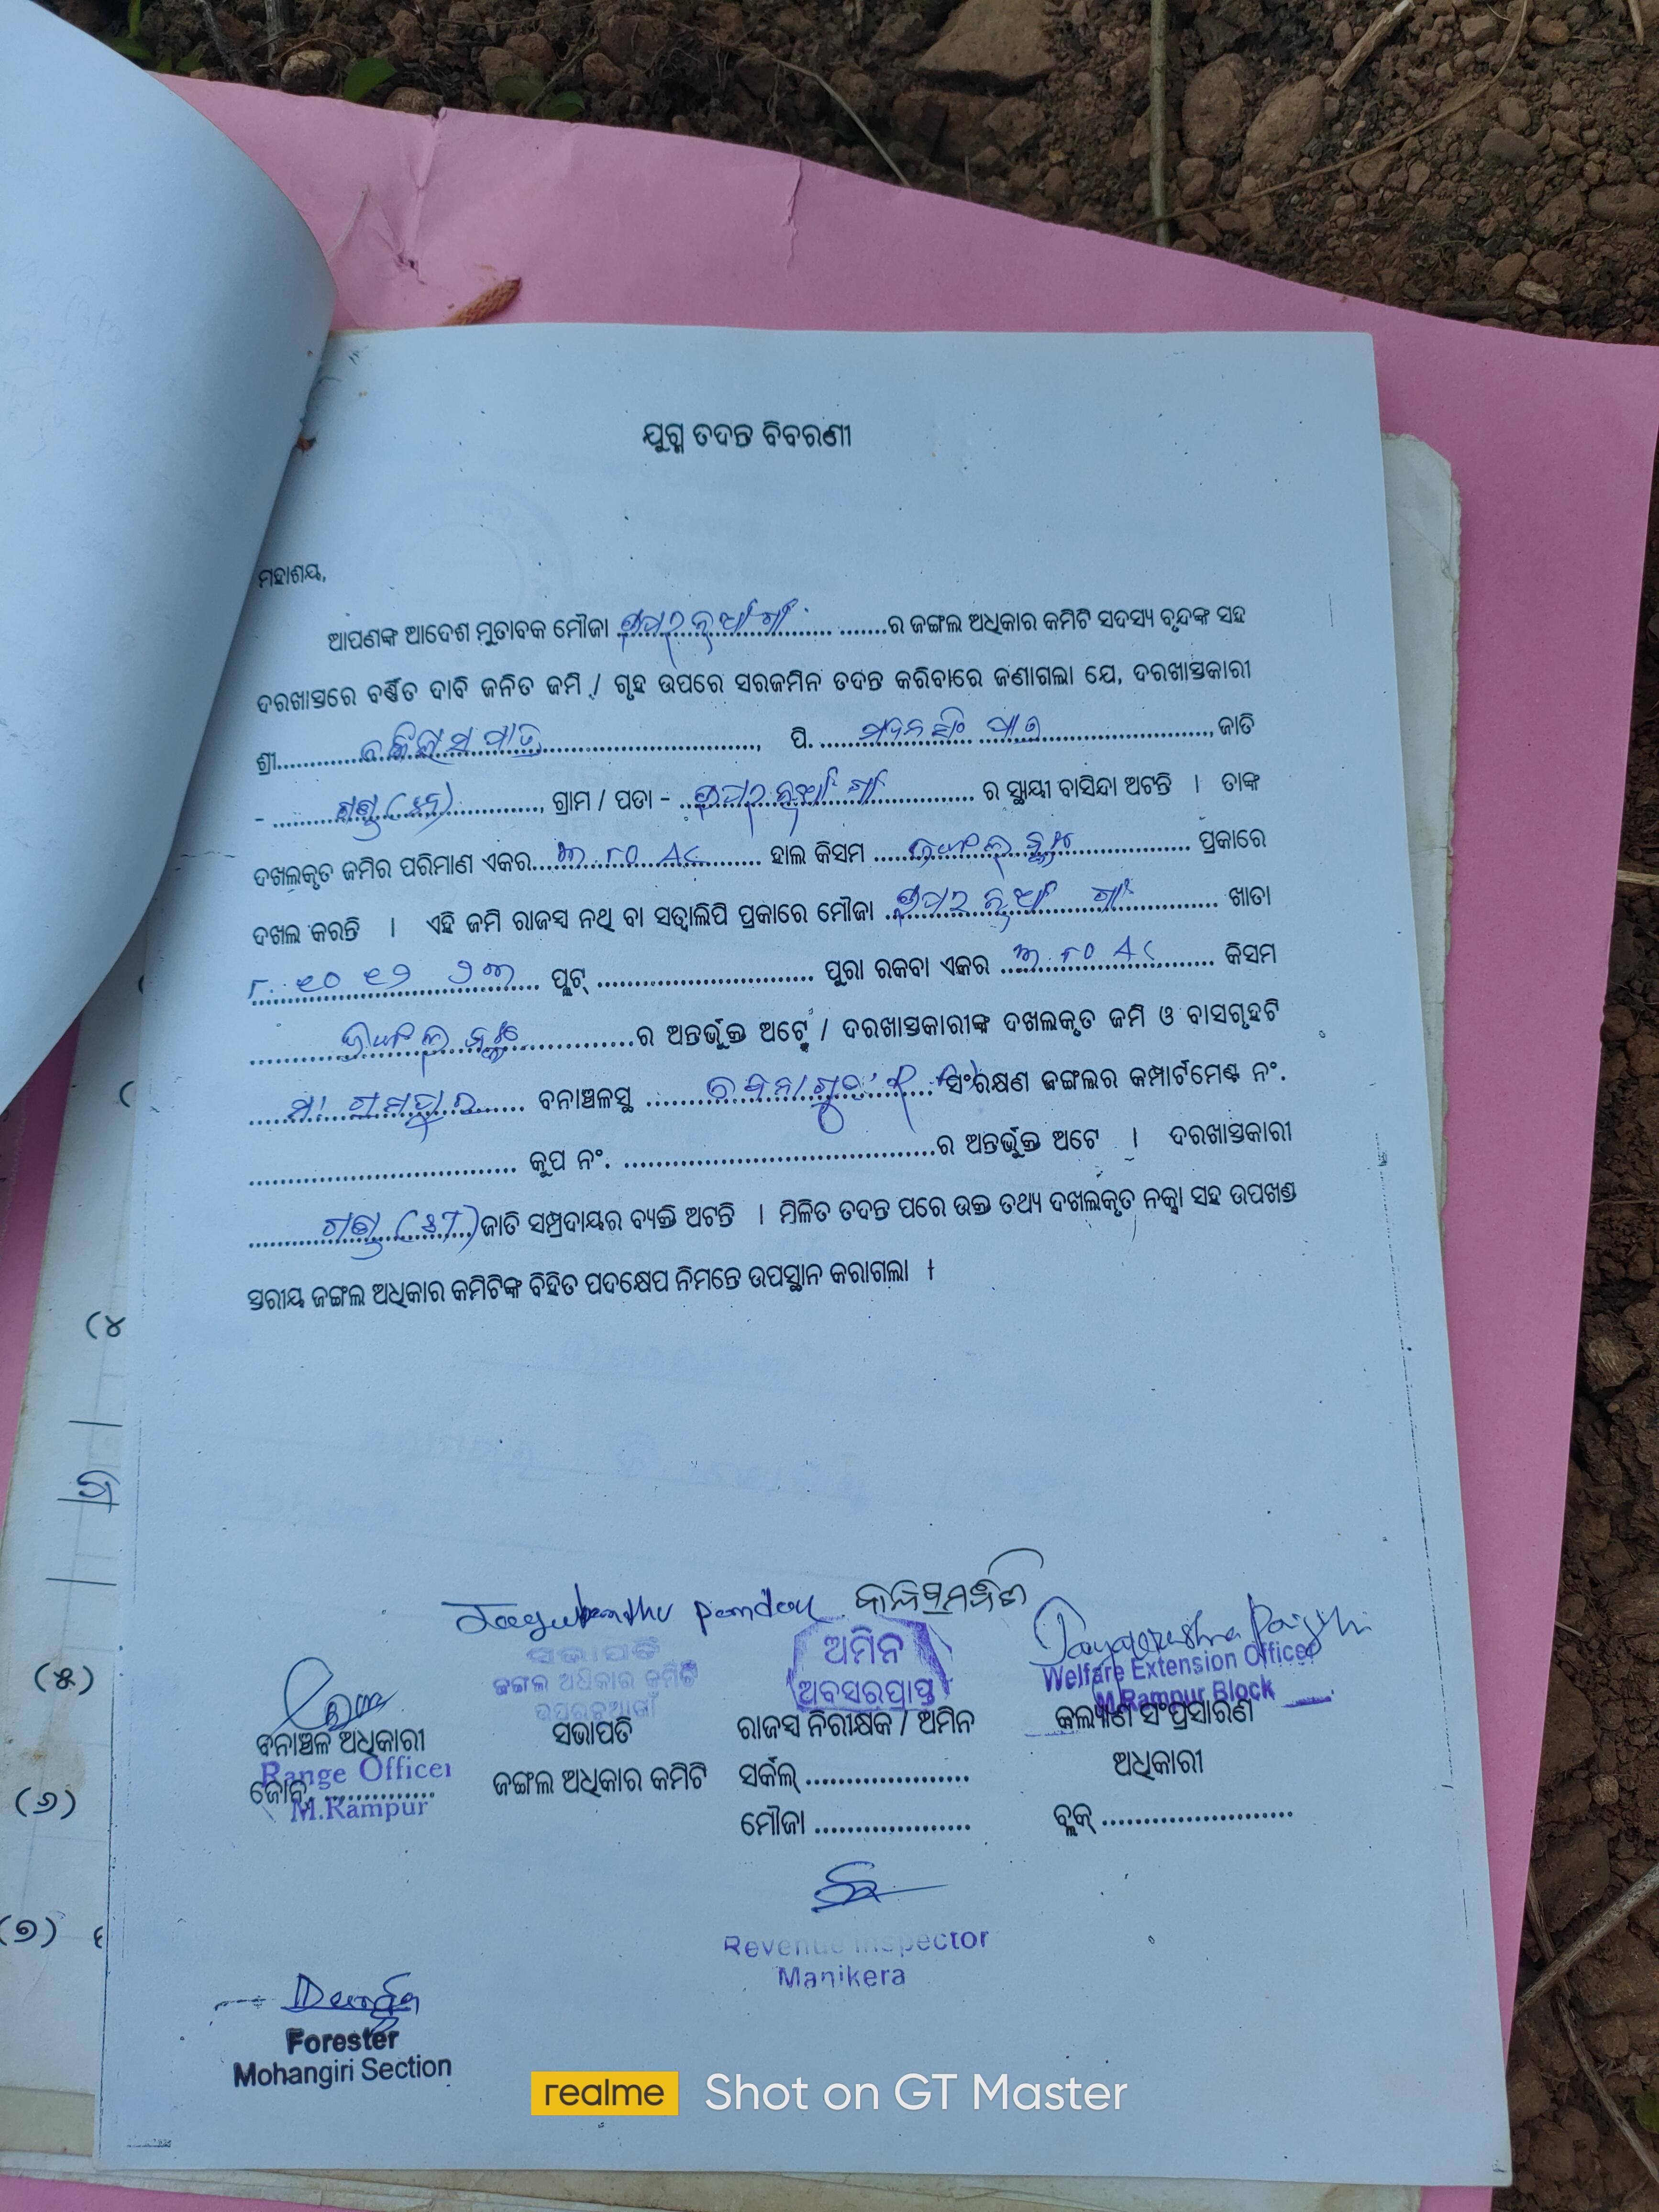 ଯୁଗ୍ମ ତଦନ୍ତ ବିବରଣୀ
ମହାଶୟ,
ଆପଣଙ୍କ ଆଦେଶ ମୁତାବକ ମୌଜା ଉପର ନୂଆଁ ଗାଁ ର ଜଙ୍ଗଲ ଅଧିକାର କମିଟି ସଦସ୍ୟ ବୃନ୍ଦଙ୍କ ସହ
ଦରଖାସ୍ତରେ ବର୍ଣ୍ଣିତ ଦାବି ଜନିତ ଜମି / ଗୃହ ଉପରେ ସରଜମିନ ତଦନ୍ତ କରିବାରେ ଜଣାଗଲା ଯେ, ଦରଖାସ୍ତକାରୀ
ଶ୍ରୀ..................., ପି. ..................., ଜାତି
- ଗଣ୍ଡ ..................., ଗ୍ରାମ / ପଡା - ଉପର ନୂଆଁ ଗାଁ ର ସ୍ଥାୟୀ ବାସିନ୍ଦା ଅଟନ୍ତି । ତାଙ୍କ
ଦଖଲକୃତ ଜମିର ପରିମାଣ ଏକର ୩.୮୦ Ac ହାଲ କିସମ ................... ପ୍ରକାରେ
ଦଖଲ କରନ୍ତି । ଏହି ଜମି ରାଜସ୍ୱ ନଥି ବା ସତ୍ୱାଲିପି ପ୍ରକାରେ ମୌଜା ଉପର ନୂଆଁ ଗାଁ ଖାତା
................... ପ୍ଲଟ୍ ................... ପୁରା ରକବା ଏକର ୩.୮୦ Ac କିସମ
...................ର ଅନ୍ତର୍ଭୁକ୍ତ ଅଟେ / ଦରଖାସ୍ତକାରୀଙ୍କ ଦଖଲକୃତ ଜମି ଓ ବାସଗୃହଟି
ମ. ରାମପୁର ବନାଞ୍ଚଳସ୍ଥ ................... ସଂରକ୍ଷଣ ଜଙ୍ଗଲର କମ୍ପାର୍ଟମେଣ୍ଟ ନଂ.
................... କୁପ ନଂ. ...................ର ଅନ୍ତର୍ଭୁକ୍ତ ଅଟେ । ଦରଖାସ୍ତକାରୀ
ଗଣ୍ଡ (ST) ଜାତି ସମ୍ପ୍ରଦାୟର ବ୍ୟକ୍ତି ଅଟନ୍ତି । ମିଳିତ ତଦନ୍ତ ପରେ ଉକ୍ତ ତଥ୍ୟ ଦଖଲକୃତ ନକ୍ସା ସହ ଉପଖଣ୍ଡ
ସ୍ତରୀୟ ଜଙ୍ଗଲ ଅଧିକାର କମିଟିଙ୍କ ବିହିତ ପଦକ୍ଷେପ ନିମନ୍ତେ ଉପସ୍ଥାନ କରାଗଲା ।
ସଭାପତି
ଜଙ୍ଗଲ ଅଧିକାର କମିଟି
ଅମିନ
ଅବସରପ୍ରାପ୍ତ
Welfare Extension Officer
M.Rampur Block
ବନାଞ୍ଚଳ ଅଧିକାରୀ
Range Officer
ଜୋନ୍ ...............
M.Rampur
ସଭାପତି
ଜଙ୍ଗଲ ଅଧିକାର କମିଟି
ରାଜସ୍ୱ ନିରୀକ୍ଷକ / ଅମିନ
ସର୍କଲ୍ ....................
ମୌଜା ....................
କଲ୍ୟାଣ ସଂପ୍ରସାରଣ
ଅଧିକାରୀ
ବ୍ଲକ୍ ........................
Revenue Inspector
Manikera
Forester
Mohangiri Section
(୪
(୫)
(୬)
(୭)
realme Shot on GT Master